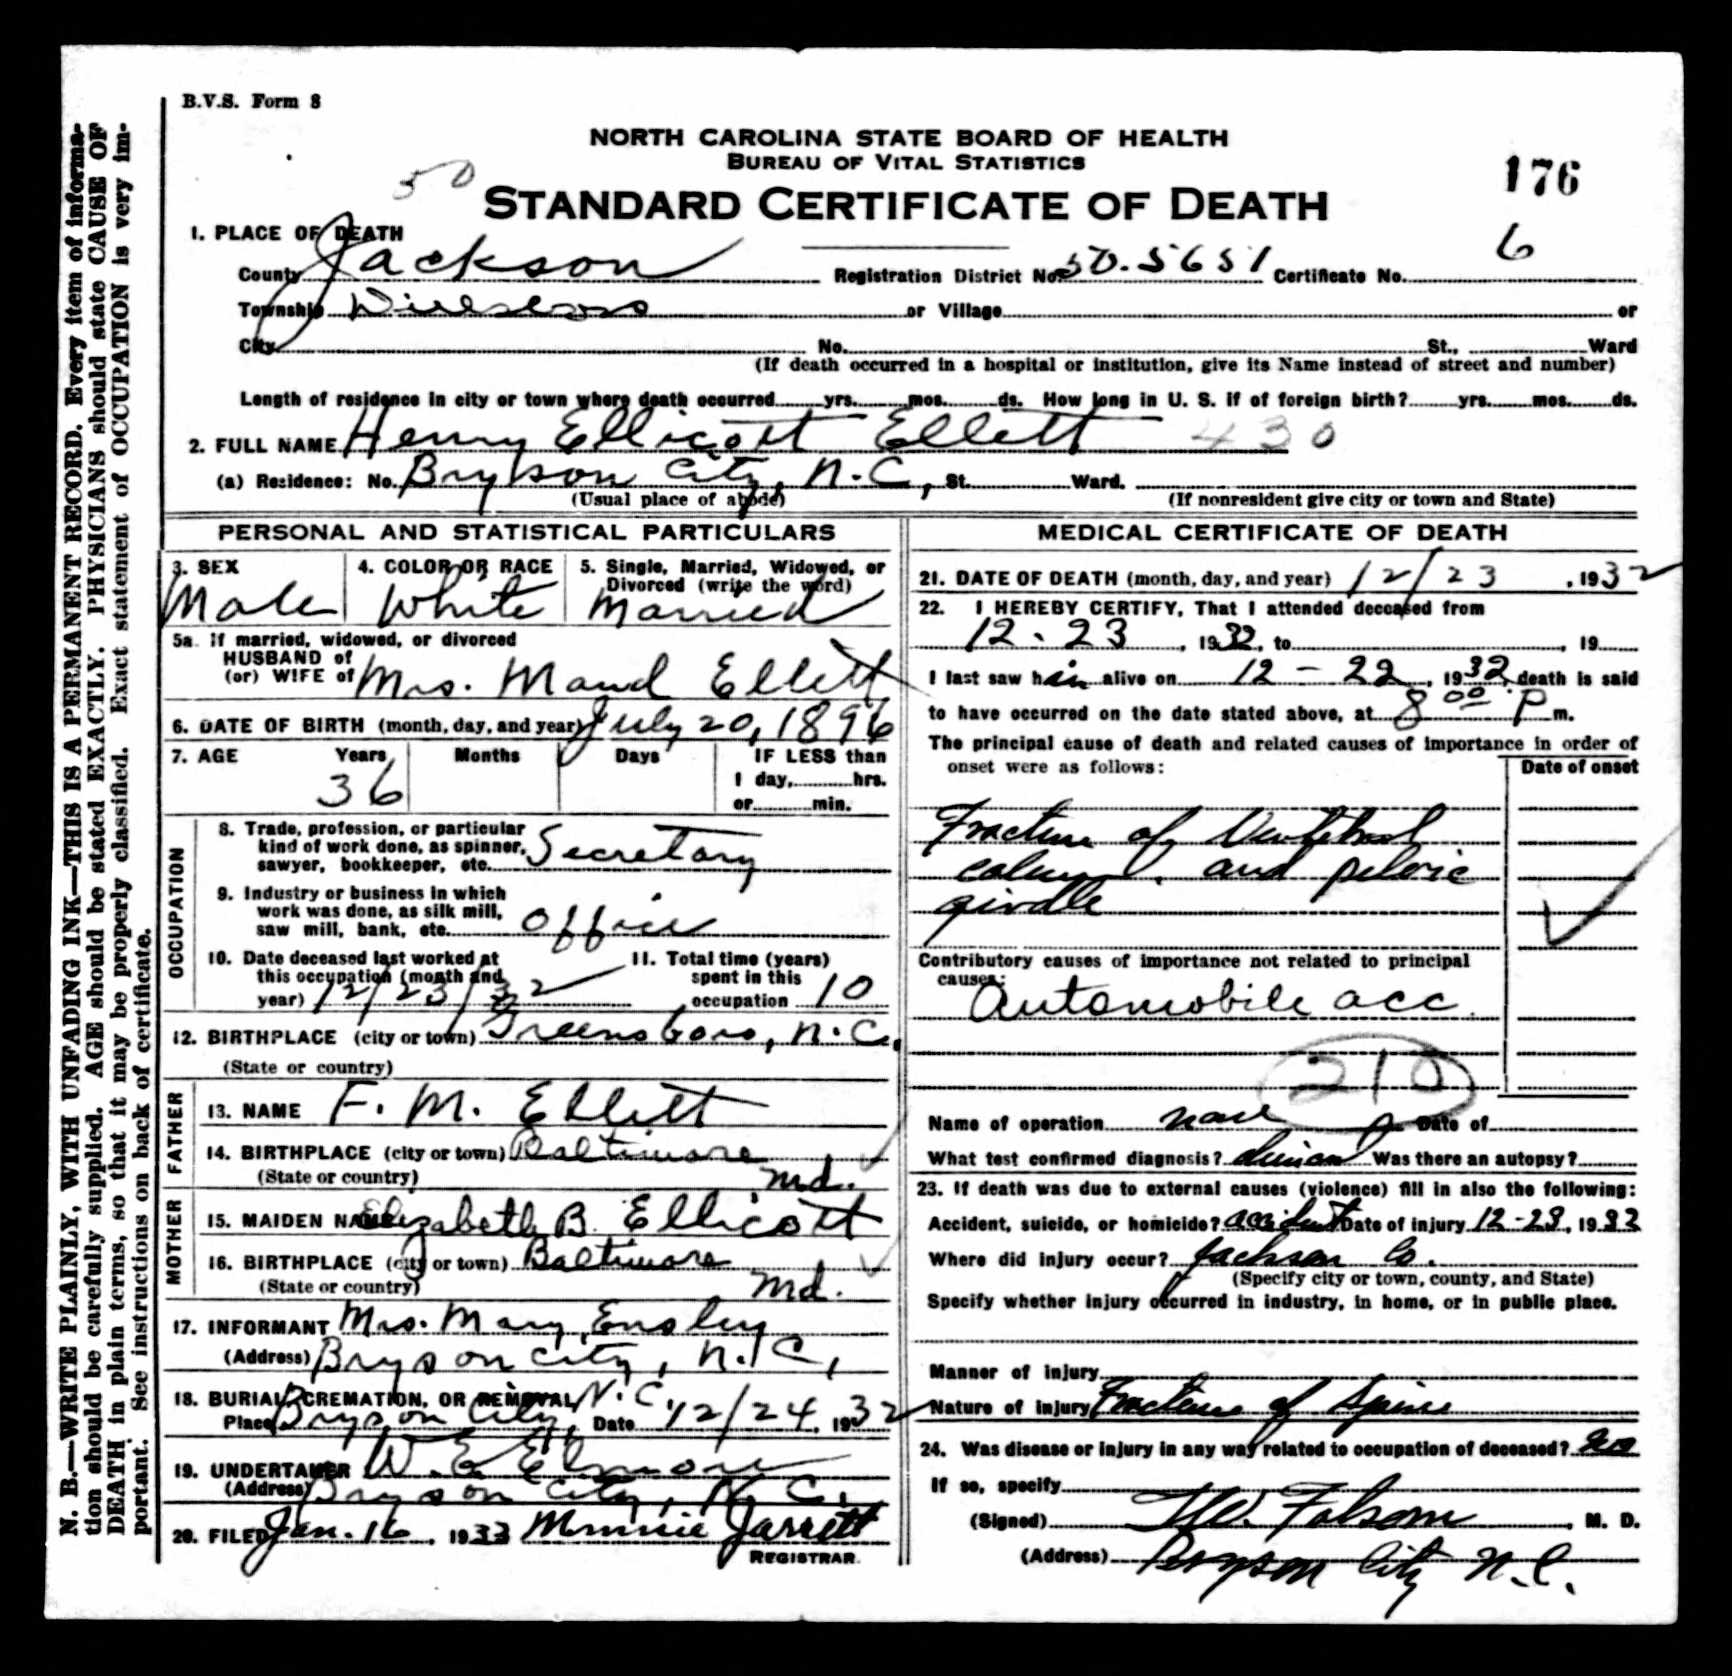 B.V.S. Form 8
NORTH CAROLINA STATE BOARD OF HEALTH
BUREAU OF VITAL STATISTICS
50
STANDARD CERTIFICATE OF DEATH
176
1. PLACE OF DEATH
County Jackson Registration District No. 50.5651 Certificate No. 6
Township or Village or
City No. St., Ward
(If death occurred in a hospital or institution, give its Name instead of street and number)
Length of residence in city or town where death occurred yrs. mos. ds. How long in U. S. if of foreign birth? yrs. mos. ds.
2. FULL NAME Henry Ellicott Ellett 430
(a) Residence: No. Bryson City, N.C., St. Ward.
(Usual place of abode) (If nonresident give city or town and State)
PERSONAL AND STATISTICAL PARTICULARS
3. SEX 4. COLOR OR RACE 5. Single, Married, Widowed, or
Divorced (write the word)
Male White Married
5a. If married, widowed, or divorced
HUSBAND of
(or) WIFE of Mrs. Maud Ellett
6. DATE OF BIRTH (month, day, and year) July 20, 1896
7. AGE Years Months Days IF LESS than
1 day, hrs.
36
or min.
OCCUPATION
8. Trade, profession, or particular
kind of work done, as spinner,
sawyer, bookkeeper, etc. Secretary
9. Industry or business in which
work was done, as silk mill,
saw mill, bank, etc. office
10. Date deceased last worked at
this occupation (month and
year) 12/23/32
11. Total time (years)
spent in this
occupation 10
12. BIRTHPLACE (city or town) Greensboro, N.C.
(State or country)
FATHER
13. NAME F. M. Ellett
14. BIRTHPLACE (city or town) Baltimore
(State or country) Md.
MOTHER
15. MAIDEN NAME Elizabeth B. Ellicott
16. BIRTHPLACE (city or town) Baltimore
(State or country) Md.
17. INFORMANT Mrs. Mary Ensley
(Address) Bryson City, N.C.,
18. BURIAL, CREMATION, OR REMOVAL N.C.
Place Bryson City, Date 12/24, 1932
19. UNDERTAKER W. E. Elmore
(Address) Bryson City, N.C.
20. FILED Jan. 16, 1933 Minnie Jarrett
REGISTRAR
MEDICAL CERTIFICATE OF DEATH
21. DATE OF DEATH (month, day, and year) 12/23, 1932
22. I HEREBY CERTIFY, That I attended deceased from
12-23, 1932, to , 19
I last saw him alive on 12-22, 1932, death is said
to have occurred on the date stated above, at 8 00 P m.
The principal cause of death and related causes of importance in order of
onset were as follows: Date of onset
Fracture of Vertebral
column. and pelvic
girdle
Contributory causes of importance not related to principal
causes:
Automobile acc.
210
Name of operation none Date of
What test confirmed diagnosis? Was there an autopsy?
23. If death was due to external causes (violence) fill in also the following:
Accident, suicide, or homicide? accident Date of injury 12-23, 1932
Where did injury occur? Jackson Co.
(Specify city or town, county, and State)
Specify whether injury occurred in industry, in home, or in public place.
Manner of injury
Nature of injury Fracture of Spine
24. Was disease or injury in any way related to occupation of deceased? no
If so, specify
(Signed) Folsom, M. D.
(Address) Bryson City N.C.
N. B.—WRITE PLAINLY, WITH UNFADING INK—THIS IS A PERMANENT RECORD. Every item of informa-
tion should be carefully supplied. AGE should be stated EXACTLY. PHYSICIANS should state CAUSE OF
DEATH in plain terms, so that it may be properly classified. Exact statement of OCCUPATION is very im-
portant. See instructions on back of certificate.